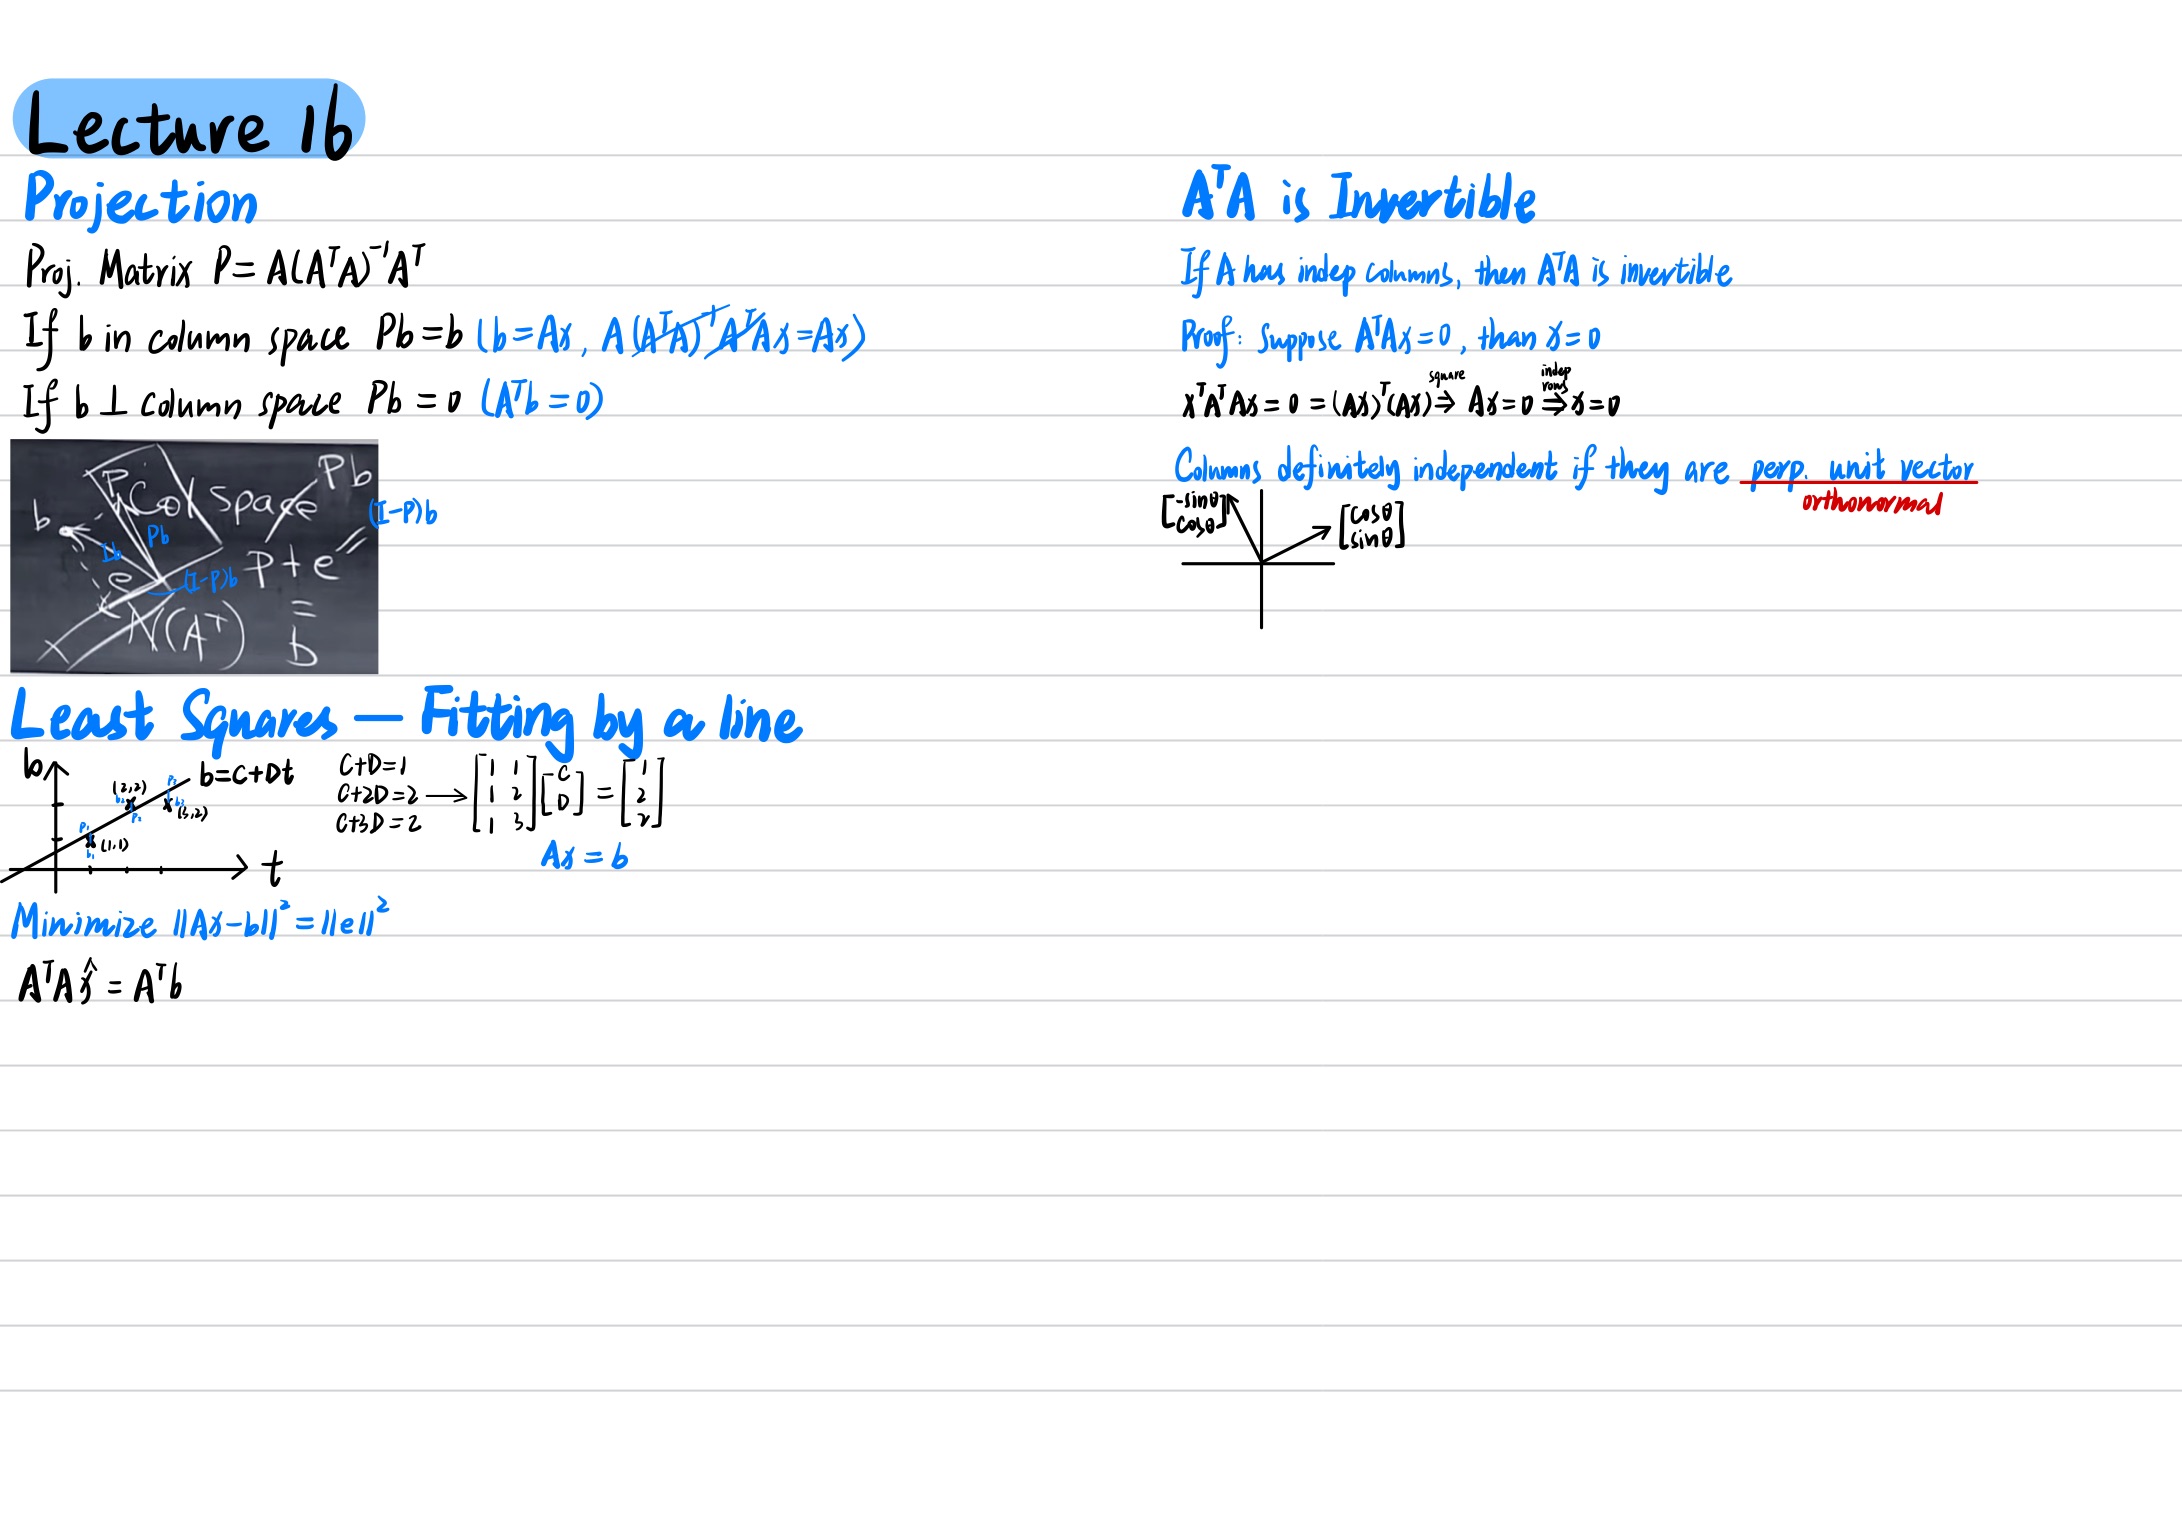 Lecture 16
Projection
Proj. Matrix P = A(AᵀA)⁻¹Aᵀ
If b in column space Pb = b (b = Ax, A(AᵀA)⁻¹AᵀAx = Ax)
If b ⊥ column space Pb = 0 (Aᵀb = 0)
P Col space Pb
b Pb (I-P)b
Ib
e (I-P)b p + e
=
N(Aᵀ) b
Least Squares — Fitting by a line
b b = C + Dt
(2,2)
(3,2)
(1,1)
t
p₁ b₁ b₂ p₂ p₃ b₃
C+D=1
C+2D=2 →
C+3D=2
[1 1] [C] = [1]
[1 2] [D] [2]
[1 3] [2]
Ax = b
Minimize ||Ax-b||² = ||e||²
AᵀAx̂ = Aᵀb
AᵀA is Invertible
If A has indep columns, then AᵀA is invertible
Proof: Suppose AᵀAx = 0, than x = 0
square indep rows
xᵀAᵀAx = 0 = (Ax)ᵀ(Ax) ⇒ Ax = 0 ⇒ x = 0
Columns definitely independent if they are perp. unit vector
orthonormal
[-sinθ] [cosθ]
[cosθ] [sinθ]